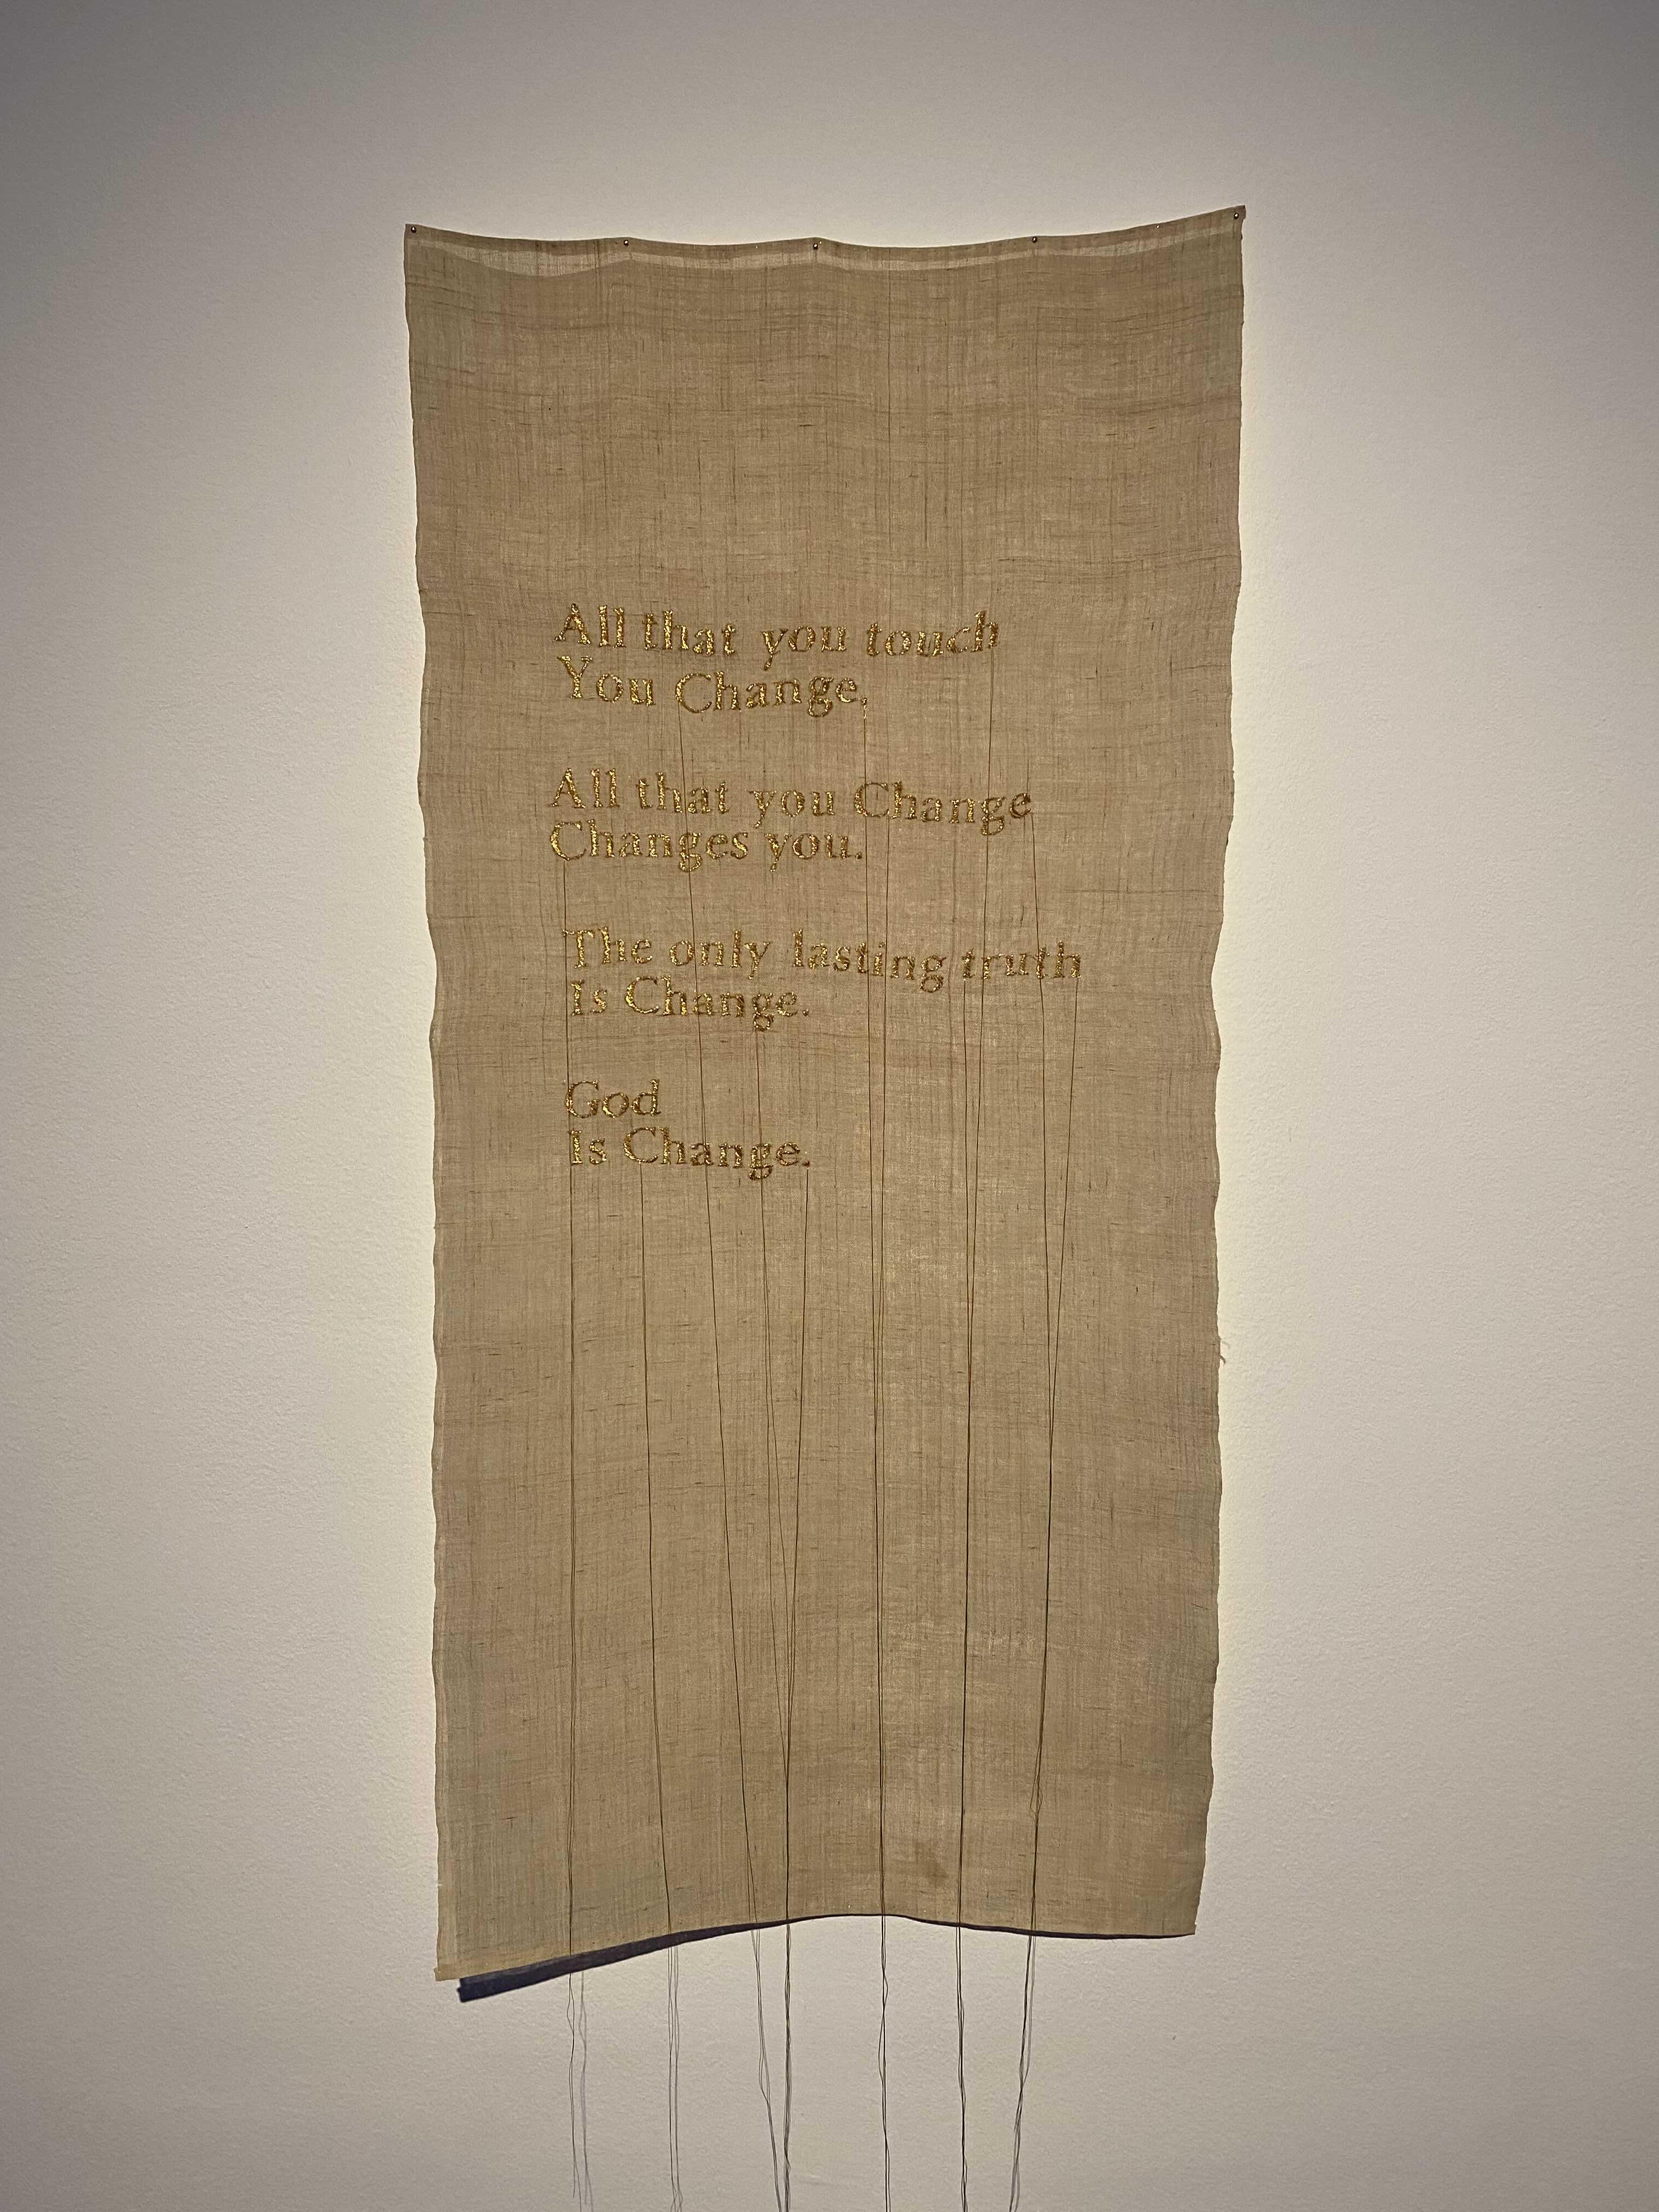 All that you touch
You Change,
All that you Change
Changes you.
The only lasting truth
Is Change.
God
Is Change.